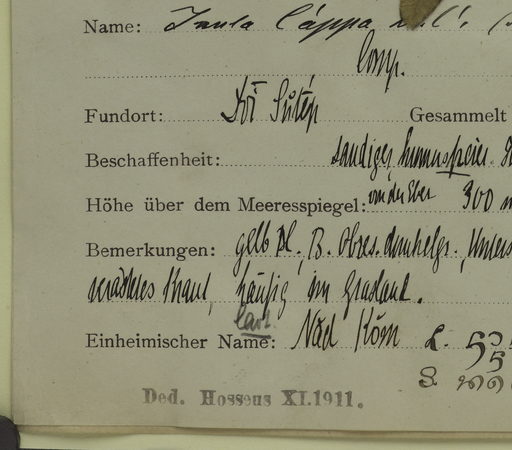 Name: Inula Cappa
Comp.
Fundort: Doi Sutep Gesammelt
Beschaffenheit: sandiger, humusfreier
Höhe über dem Meeresspiegel: von der Eber 300 m
Bemerkungen: gelb Bl., B. Obers. dunkelgr., Unters
Kraut, häufig im Grasland.
Laot.
Einheimischer Name: Nad Kōm L.
S.
Ded. Hosseus XI.1911.